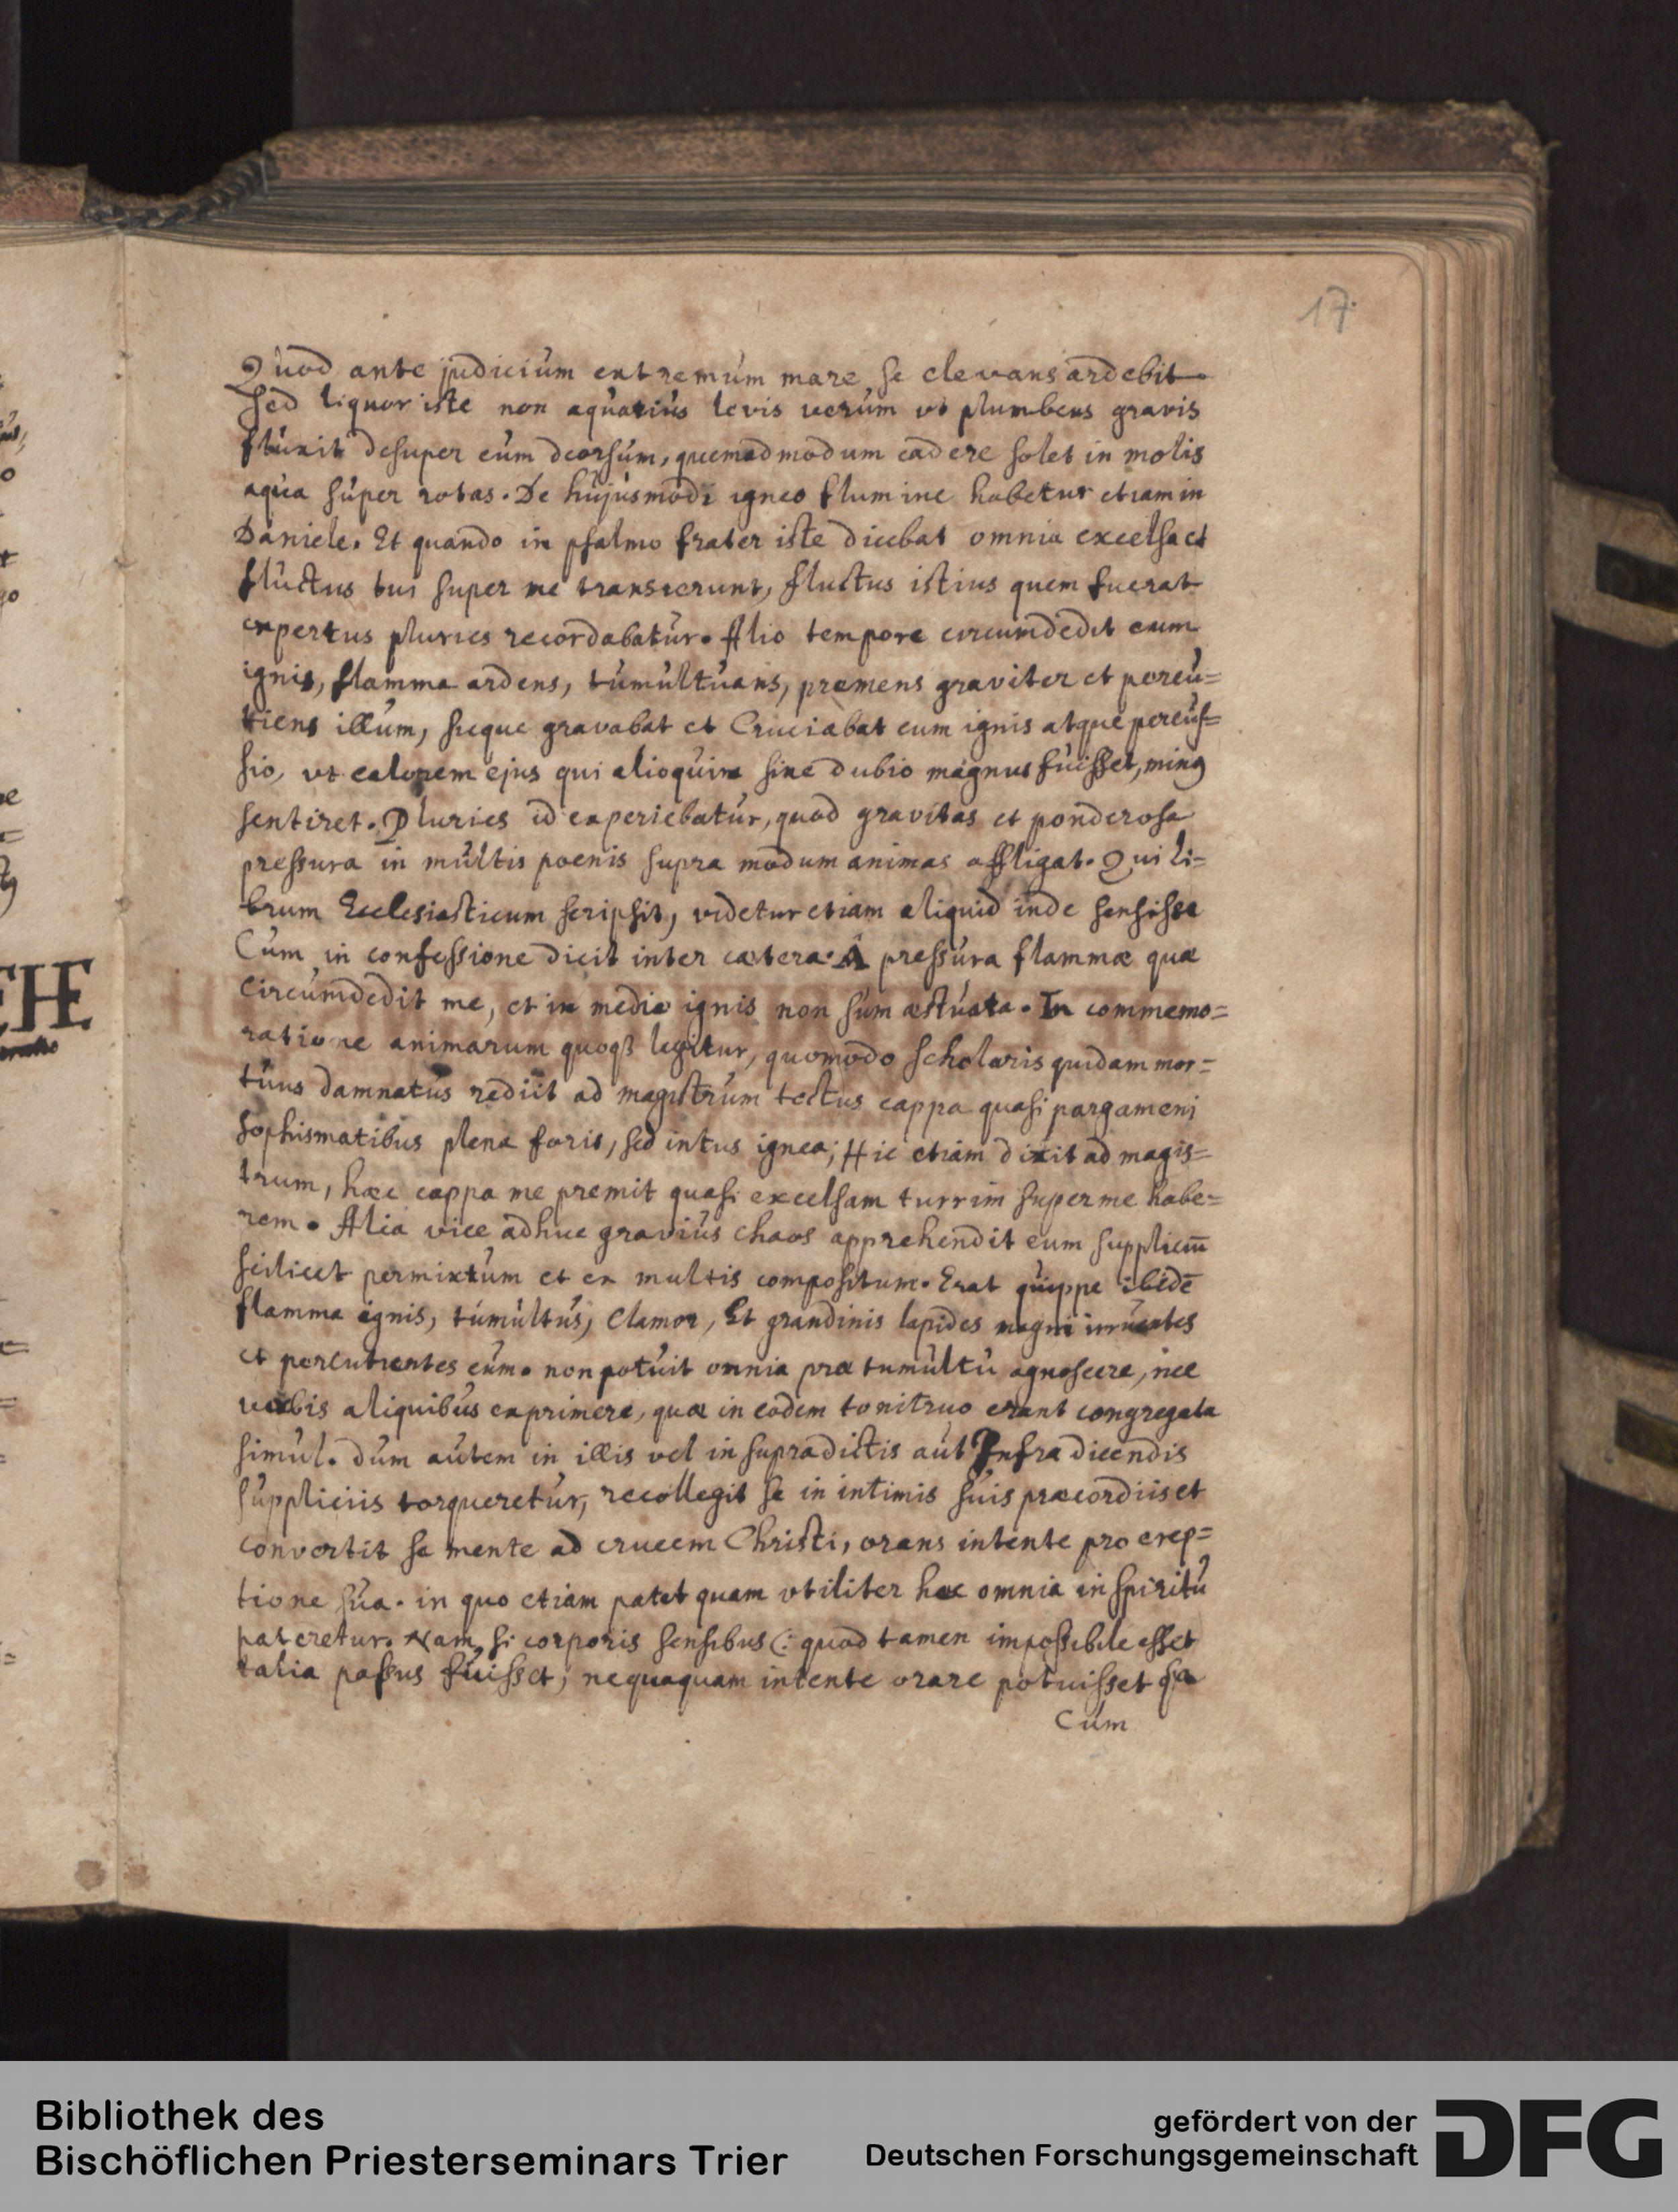 17.
Quod ante judicium extremum mare se elevans ardebit
Sed liquor iste non aquarius levis verum vt plumbeus gravis
fluxit desuper eum deorsum, quemadmodum cadere solet in molis
aqua super rotas. De hujusmodi igneo flumine habetur etiam in
Daniele. Et quando in psalmo frater iste dicebat omnia excelsa et
fluctus tui super me transierunt, fluctus istius quem fuerat
expertus pluries recordabatur. Alio tempore circumdedit eum
ignis, flamma ardens, tumultuans, premens graviter et percu=
tiens illum, sicque gravabat et Cruciabat eum ignis atque percus=
sio, vt calorem ejus qui alioquin sine dubio magnus fuisset, minꝯ
sentiret. Pluries id experiebatur, quod gravitas et ponderosa
pressura in multis poenis supra modum animas affligat. Qui li=
brum Ecclesiasticum scripsit, videtur etiam aliquid inde sensisse
Cum in confessione dicit inter cætera. A pressura flammæ quæ
circumdedit me, et in medio ignis non sum æstuata. In commemo=
ratione animarum quoqꝫ legitur, quomodo scholaris quidam mor=
tuus damnatus rediit ad magistrum tectus cappa quasi pargameni
sophismatibus plena foris, sed intus ignea; Hic etiam dixit ad magis=
trum, hæc cappa me premit quasi excelsam turrim super me habe=
rem. Alia vice adhuc gravius chaos apprehendit eum suppliciū
scilicet permixtum et ex multis compositum. Erat quippe ibidē
flamma ignis, tumultus, Clamor, Et grandinis lapides magni irruentes
et percutientes eum. non potuit omnia præ tumultu agnoscere, nec
verbis aliquibus exprimere, quæ in eodem tonitruo erant congregata
simul. dum autem in illis vel in supradictis aut Infra dicendis
suppliciis torqueretur, recollegit se in intimis suis præcordiis et
convertit se mente ad crucem Christi, orans intente pro erep=
tione sua. in quo etiam patet quam vtiliter hæc omnia in spiritu
pateretur. Nam si corporis sensibus (: quod tamen impossibile esset
talia passus fuisset; nequaquam intente orare potuisset
Cum
Bibliothek des
Bischöflichen Priesterseminars Trier
gefördert von der
Deutschen Forschungsgemeinschaft
DFG